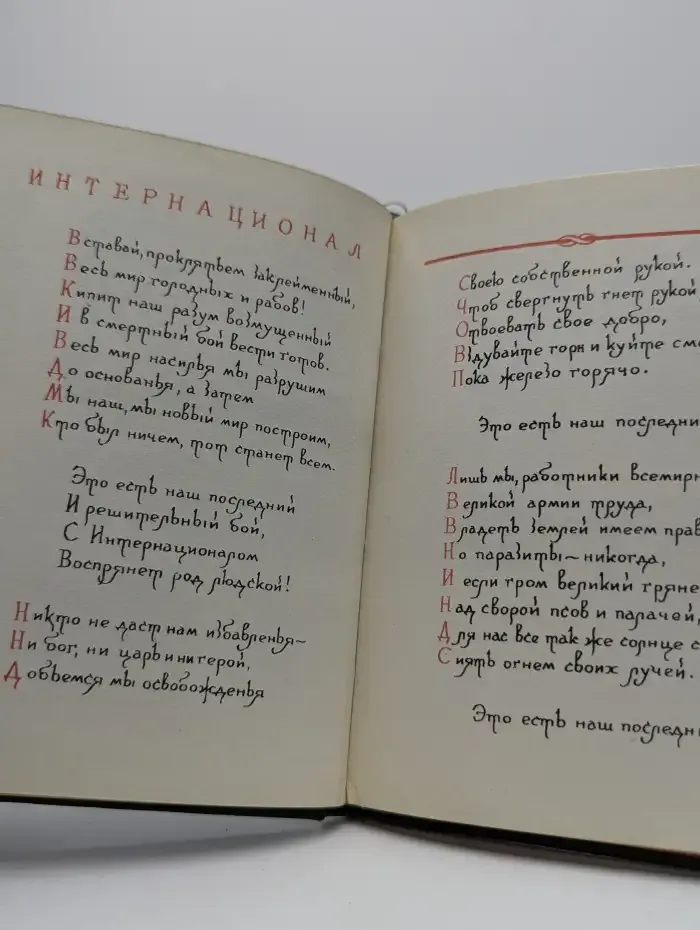 ИНТЕРНАЦИОНАЛ
Вставай, проклятьем заклейменный,
Весь мир голодных и рабов!
Кипит наш разум возмущенный
И в смертный бой вести готов.
Весь мир насилья мы разрушим
До основанья, а затем
Мы наш, мы новый мир построим,
Кто был ничем, тот станет всем.
Это есть наш последний
И решительный бой,
С Интернационалом
Воспрянет род людской!
Никто не даст нам избавленья—
Ни бог, ни царь и ни герой,
Добьемся мы освобожденья
Своею собственной рукой.
Чтоб свергнуть гнет рукой
Отвоевать свое добро,
Вздувайте горн и куйте сме
Пока железо горячо.
Это есть наш последний
Лишь мы, работники всемирн
Великой армии труда,
Владеть землей имеем прав
Но паразиты—никогда,
И если гром великий гряне
Над сворой псов и палачей,
Для нас все так же солнце с
Сиять огнем своих лучей.
Это есть наш последни